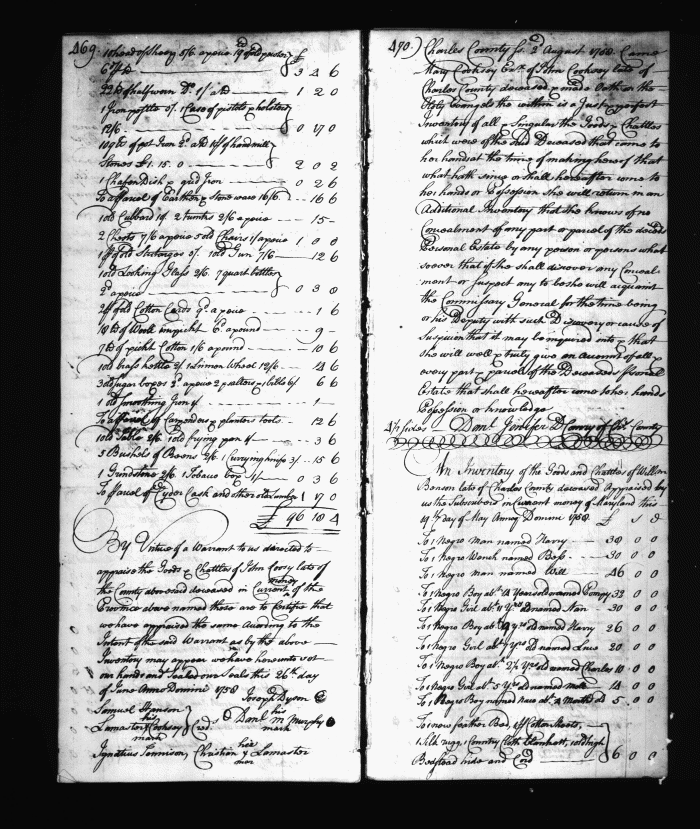 469.
1 head of Sheep 5/6 apeice 19 old pewter
67 lb 3 4 6
22 lb of half worn Do. 1/ a lb 1 2 0
1 Iron pestle 5/. 1 Case of pistols & holsters
12/6 0 17 0
109 lb of pot Iron 2d. a lb of hand mill
Stones £1. 15. 0 2 0 2
1 Chafen Dish & grid Iron 0 2 6
To a parcel of Earthen & Stone ware 16/6 16 6
1 old Cubbard 1 2 trunks 2/6 apeice 15
2 Chests 7/6 apeice 5 old Chairs 1/ apeice 1 0 0
1 old Gun 7/6 12 6
1 old Looking Glass 2/6. 7 quart bottles
2d apeice 0 3 8
2 of old Cotton Cards 9d. apeice 1 6
18 lb of Wooll unpickt 6d. a pound 9
7 lb of pickt Cotton 1/6 a pound 10 6
1 old brass kettle 2/ 1 Linnen Wheel 12/6 14 6
3 old sugar boxes 2d. apeice 2 & 1 bible 6/ 6 6
1 old Smoothing Iron 1
To a parcel of & planters tools 12 6
1 old Table 2/6 1 old frying pan 3 6
5 Bushels of Beans 2/6. 1 Currying knife 3/ 15 6
1 Grindstone 2/6. 1 Tobacco box 1/ 0 3 6
To a parcel of Cyder Cask and other old 1 7 0
£ 96 18 4
By Virtue of a Warrant to us directed to
appraise the Goods & Chattles of John late of
the County aforesaid deceased in Current money of the
Province above named these are to Certifie that
we have appraised the same According to the
Intent of the said Warrant as by the above
Inventory may appear we have hereunto set
our hands and Sealed our Seals this 26th day
of June Anno Domini 1758
Joseph Dyson
his
Samuel Hanson
Danl M Murphy
mark
his
Lamaster Cooksey Creds
mark
Ignatius Simmison, Christian Lamaster
her
470.) Charles County ss. 2d August 1758. Came
Mary Cooksey Extx. of John Cooksey late of
Charles County deceased & made Oath on the
Holy Evangels the within is a Just & perfect
Inventory of all & Singular the Goods & Chattles
which were of the said Deceased that came to
her hands at the time of making hereof that
what hath since or shall hereafter come to
her hands or Possession she will return in an
Additional Inventory that she knows of no
Concealment of any part or parcel of the deced's
Personal Estate by any person or persons what
soever that if she shall discover any Conceal
ment or Suspect any to be she will acquaint
the Commissary General for the time being
or his Deputy with such Discovery or cause of
Suspicion that it may be inquired into & that
she will well & truly give an Account of all &
every part & parcel of the Deceased's personal
Estate that shall hereafter come to her hands
Possession or knowledge
Danl. Jenifer D Comry of Chs. County
An Inventory of the Goods and Chattles of William
Benson late of Charles County deceased Appraised by
us the Subscribers in Current money of Maryland this
19th day of May Annoq Domini 1758 £ s d
To 1 Negro Man named Harry 38 0 0
To 1 Negro Wench named Bess 30 0 0
To 1 Negro man named Will 46 0 0
To 1 Negro Boy abt. 14 Years old named Pompy 32 0 0
To 1 Negro Girl abt. 11 Yrs old named Nan 30 0 0
To 1 Negro Boy abt. 9 yrs old named Harry 26 0 0
To 1 Negro Girl abt. 7 yrs old named Luce 20 0 0
To 1 Negro Boy abt. 2½ Yrs old named Charles 10 0 0
To 1 Negro Girl abt. 5 Yrs old named 14 0 0
To 1 Negro Boy named abt. 4 Month old 5 0 0
To 1 new feather Bed, 1 pr of Cotton Sheets,
1 Silk rugg, 1 Country Cloth Blankett, 1 old high
Bedstead hide and Cord 6 0 0